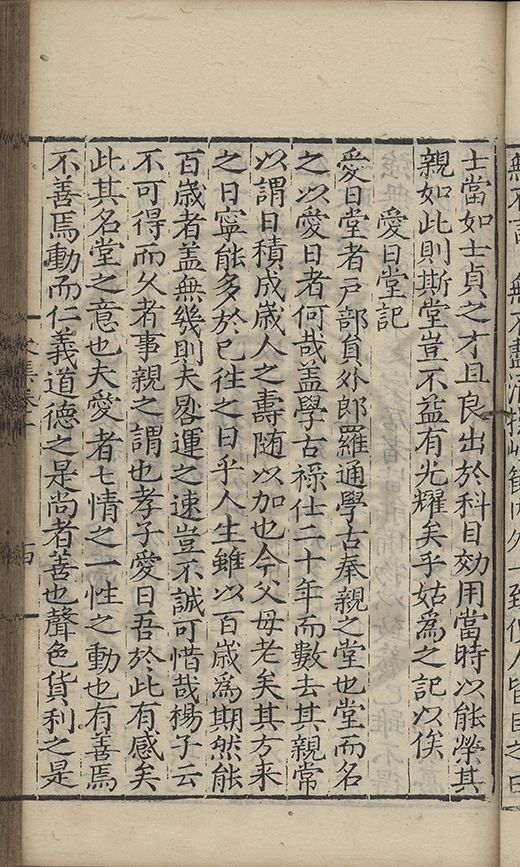 士當如士貞之才且良出於科目効用當時以能榮其
親如此則斯堂豈不益有光耀矣乎姑為之記以俟
愛日堂記
愛日堂者戸部貟外郎羅通學古奉親之堂也堂而名
之以愛日者何哉盖學古禄仕二十年而數去其親常
以謂日積成嵗人之壽随以加也今父母老矣其方來
之日寧能多於已徃之日乎人生雖以百歳為期然能
百歳者盖無幾則夫晷運之速豈不誠可惜哉楊子云
不可得而久者事親之謂也孝子愛日吾於此有感矣
此其名堂之意也夫愛者七情之一性之動也有善焉
不善焉動而仁義道德之是尚者善也聲色貨利之是